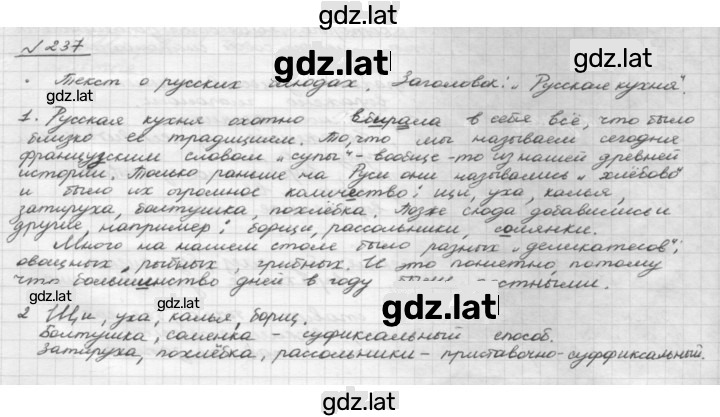 gdz.lat
№ 237
gdz.lat
gdz.lat
• Текст о русских блюдах. Заголовок: „Русская кухня".
gdz.lat
gdz.lat
1. Русская кухня охотно вбирала в себя всё, что было
близко её традициям. То, что мы называем сегодня
французским словом „супы" - вообще-то из нашей древней
истории. Только раньше на Руси они назывались „хлёбово"
и было их огромное количество: щи, уха, калья,
затируха, болтушка, похлёбка. Позже сюда добавились и
другие, например: борщи, рассольники, солянки.
Много на нашем столе было разных „деликатесов":
овощных, рыбных, грибных. И это понятно, потому
что большинство дней в году были постными.
gdz.lat
gdz.lat
gdz.lat
2 Щи, уха, калья, борщ.
Болтушка, солянка - суфиксальный способ.
Затируха, похлёбка, рассольники - приставочно-суффиксальный.
gdz.lat